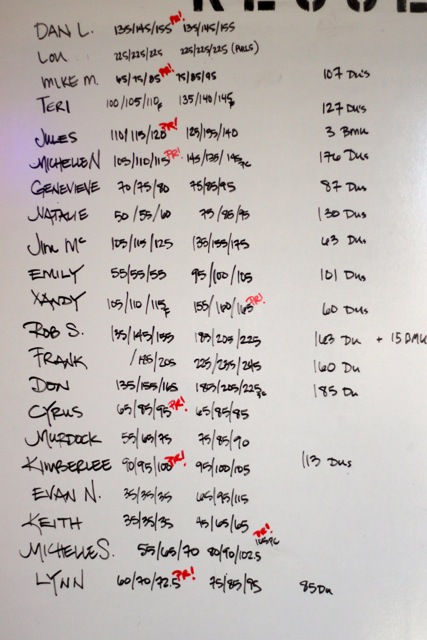 DAN L. 135/145/155 PR! 135/145/155
LOU 225/225/225 225/225/225 (PULLS)
MIKE M. 65/75/85 PR! 75/85/95 107 DU'S
TERI 100/105/110F 135/140/145F 127 DU'S
JULES 110/115/120 PR! 125/135/140 3 BMU
MICHELLE N 105/110/115 PR! 145/135/145PC 176 DUS
GENEVIEVE 70/75/80 75/85/95 87 DUS
NATALIE 50/55/60 75/85/95 130 DUS
JIM MC 105/115/125 135/155/175 63 DUS
EMILY 55/55/55 95/100/105 101 DUS
XANDY 105/110/115F 155/160/165 PR! 60 DUS
ROB S. 135/145/155 185/205/225 163 DU + 15 BMU
FRANK /185/205 225/235/245 160 DU
DON 135/155/165 185/205/225PC 185 DU
CYRUS 65/85/95 PR! 65/85/85
MURDOCK 55/65/75 75/85/90
KIMBERLEE 90/95/100 PR! 95/100/105 113 DUS
EVAN N. 35/35/35 65/95/115
KEITH 35/35/35 45/65/65
MICHELLE S. 55/65/70 80/90/102.5 PR! 105PC
LYNN 60/70/72.5 PR! 75/85/95 85 DU